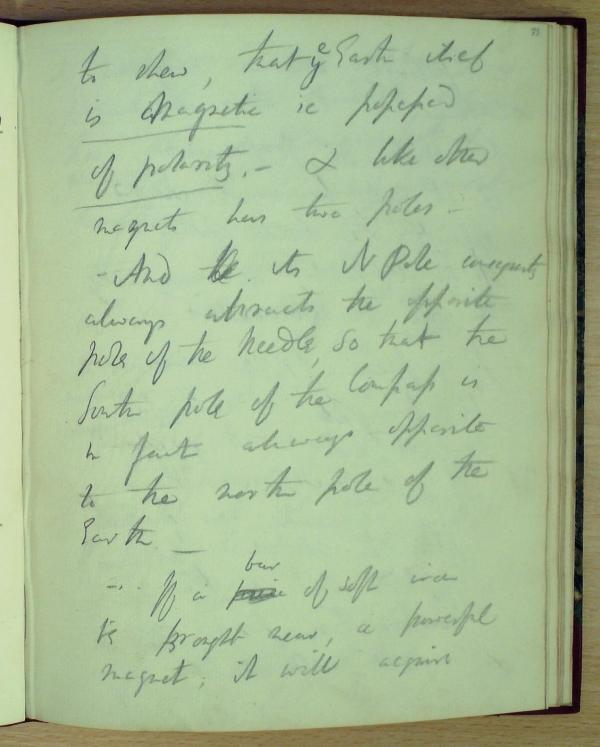 to shew, that yᵉ Earth itself
is Magnetic ie possessed
of polarity. – & like other
magnets has two poles –
– And its N Pole consequently
always attracts the opposite
pole of the Needle, So that the
South pole of the Compass is
in fact always opposite
to the north pole of the
Earth –
–. If a bar of soft iron
is brought near, a powerful
magnet; it will acquire